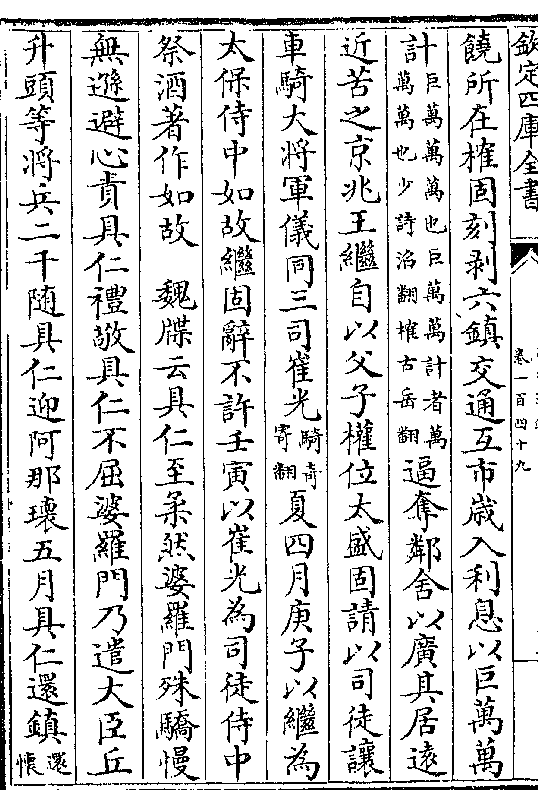 欽定四庫全書
卷一百四十九
饒所在榷固刻剥六鎮交通互市歲入利息以巨萬萬
計巨萬萬萬也巨萬萬計者萬萬萬也少詩沼翻榷古岳翻逼奪鄰舍以廣其居遠
近苦之京兆王繼自以父子權位太盛固請以司徒讓
車騎大將軍儀同三司崔光騎奇寄翻夏四月庚子以繼為
太保侍中如故繼固辭不許壬寅以崔光為司徒侍中
祭酒著作如故　魏牒云具仁至柔然婆羅門殊驕慢
無遜避心責具仁禮敬具仁不屈婆羅門乃遣大臣丘
升頭等將兵二千随具仁迎阿那瓌五月具仁還鎮還懷